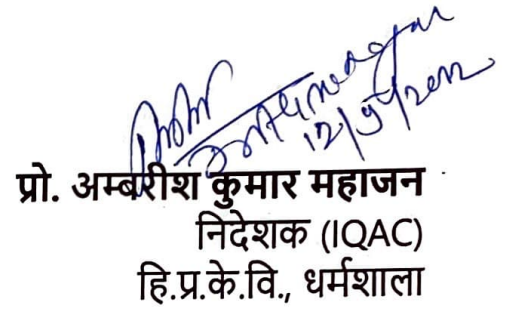 12/9/2022
प्रो. अम्बरीश कुमार महाजन
निदेशक (IQAC)
हि.प्र.के.वि., धर्मशाला